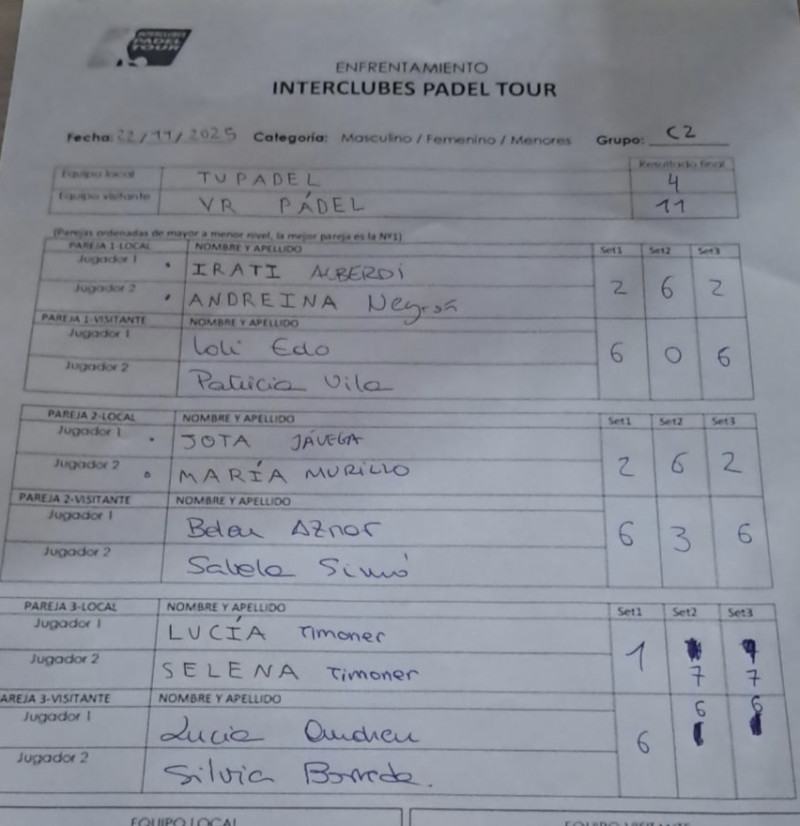 INTERCLUBES
PADEL
TOUR
ENFRENTAMIENTO
INTERCLUBES PADEL TOUR
Fecha: 22/11/2025 Categoría: Masculino / Femenino / Menores Grupo: C2
Equipo local TUPADEL Resultado final 4
Equipo visitante VR PÁDEL 11
(Parejas ordenadas de mayor a menor nivel, la mejor pareja es la Nº1)
PAREJA 1-LOCAL NOMBRE Y APELLIDO Set1 Set2 Set3
Jugador 1 IRATI ALBERDI 2 6 2
Jugador 2 ANDREINA
PAREJA 1-VISITANTE NOMBRE Y APELLIDO
Jugador 1 Loli Edo 6 0 6
Jugador 2 Patricia Vila
PAREJA 2-LOCAL NOMBRE Y APELLIDO Set1 Set2 Set3
Jugador 1 JOTA JÁVEGA 2 6 2
Jugador 2 MARÍA MURILLO
PAREJA 2-VISITANTE NOMBRE Y APELLIDO
Jugador 1 Belen AZnar 6 3 6
Jugador 2 Sabela Simó
PAREJA 3-LOCAL NOMBRE Y APELLIDO Set1 Set2 Set3
Jugador 1 LUCÍA Timoner 1 7 7
Jugador 2 SELENA Timoner
PAREJA 3-VISITANTE NOMBRE Y APELLIDO
Jugador 1 Lucia Andreu 6 6 6
Jugador 2 Silvia Borreda.
EQUIPO LOCAL EQUIPO VISITANTE